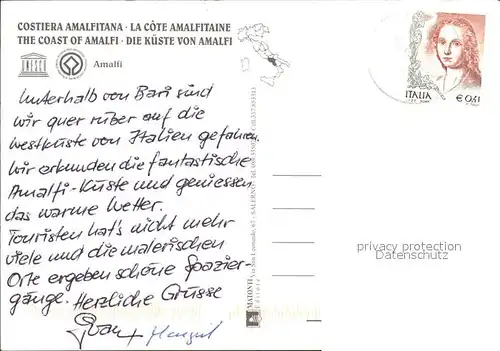 COSTIERA AMALFITANA · LA CÔTE AMALFITAINE
THE COAST OF AMALFI · DIE KÜSTE VON AMALFI
UNESCO
Amalfi
Unterhalb von Bari sind
wir quer rüber auf die
Westküste von Italien gefahren.
Wir erkunden die fantastische
Amalfi-Küste und geniessen
das warme Wetter.
Touristen hat's nicht mehr
viele und die malerischen
Orte ergeben schöne Spazier-
gänge. Herzliche Grüsse
ITALIA
€ 0,41
privacy protection
Datenschutz
MATONTI